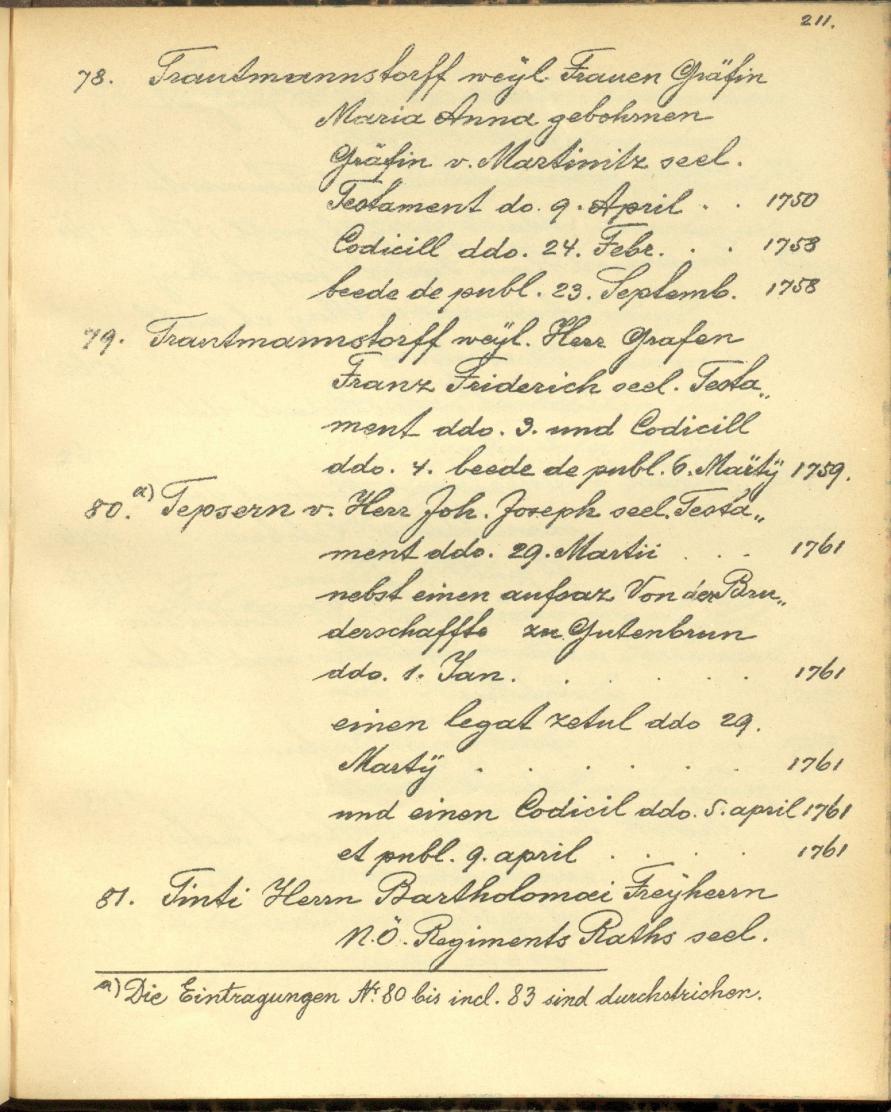 211.
78. Trautmannstorff weÿl. Frauen Gräfin
Maria Anna gebohrnen
Gräfin v. Martinitz seel.
Testament do. 9. April . . 1750
Codicill ddo. 24. Febr. . . 1758
beede de publ. 23. Septemb. 1758
79. Trautmannstorff weÿl. Herr Grafen
Franz Friderich seel. Testa„
ment ddo. 3. und Codicill
ddo. 4. beede de publ. 6. Martÿ 1759.
80. a) Tepsern v. Herr Joh. Joseph seel. Testa„
ment ddo. 29. Martii . . . 1761
nebst einen aufsaz Von der Bru„
derschaffte zu Gutenbrun
ddo. 1. Jan. . . . . . . 1761
einen legat zetul ddo 29.
Martÿ . . . . . . 1761
und einen Codicil ddo. 5. april 1761
et publ. 9. april . . . . 1761
81. Tinti Herrn Bartholomæi Freÿherrn
N.Ö. Regiments Raths seel.
a) Die Eintragungen Nr. 80 bis incl. 83 sind durchstrichen.